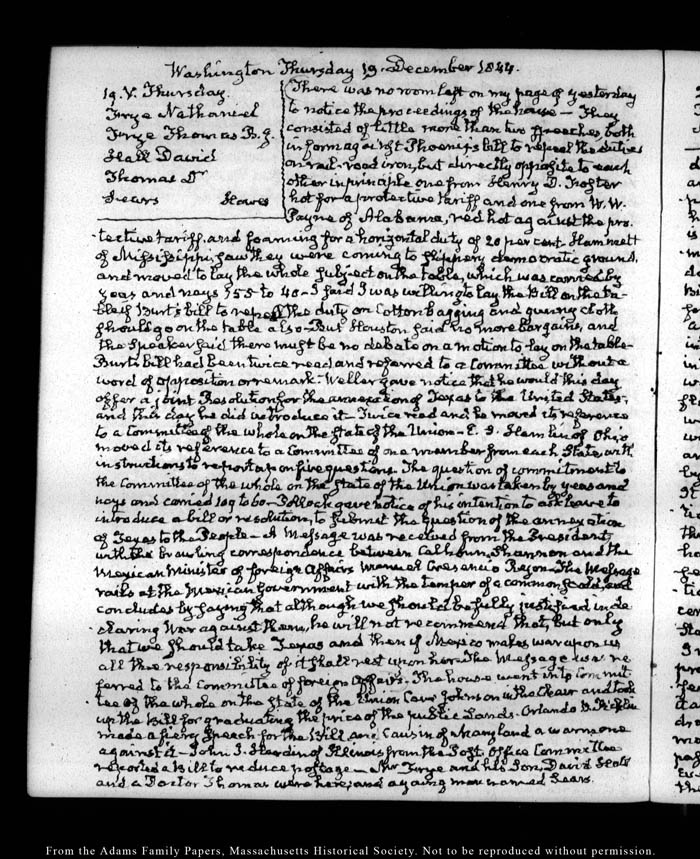 Washington Thursday 19. December 1844.
19. V. Thursday.
Frye Nathaniel
Frye Thomas B. J.
Hall David
Thomas Dr
Sears Howes
There was no room left on my page of yesterday
to notice the proceedings of the house — They
consisted of little more than two speeches both
in form against Phoenix's bill to repeal the duties
on rail-road iron, but directly opposite to each
other in principle one from Henry D. Foster
hot for a protective tariff and one from W. W.
Payne of Alabama, red hot against the pro-
tective tariff, and foaming for a horizontal duty of 20 per cent. Hammett
of Mississippi, saw they were coming to slippery democratic ground,
and moved to lay the whole subject on the table, which was carried by
yeas and nays 155 to 40 - I said I was willing to lay the Bill on the ta-
ble if Burt's bill to repeal the duty on Cotton bagging and gunny cloth
should go on the table also - But Houston said no more bargains, and
the Speaker said there must be no debate on a motion to lay on the table -
Burt's bill had been twice read and referred to a Committee without a
word of opposition or remark. Weller gave notice that he would this day
offer a joint Resolution for the annexation of Texas to the United States,
and this day he did introduce it - Twice read and he moved its reference
to a Committee of the whole on the State of the Union - E. S. Hamlin of Ohio
moved its reference to a Committee of one member from each State, with
instructions to report upon five questions. The question of commitment to
the Committee of the whole on the State of the Union was taken by yeas and
nays and carried 109 to 60 - J. Black gave notice of his intention to ask leave to
introduce a bill or resolution, to submit the question of the annexation
of Texas to the People - A Message was received from the President
with the brawling correspondence between Calhoun, Shannon and the
Mexican Minister of foreign Affairs Manuel Crescencio Rejon - The Message
rails at the Mexican Government with the temper of a common scold, and
concludes by saying that although we should be fully justified in de-
claring War against them, he will not recommend that, but only
that we should take Texas and then if Mexico makes war upon us
all the responsibility of it shall rest upon her. The Message was re-
ferred to the Committee of foreign Affairs. The house went into Commit-
tee of the whole on the State of the Union Cave Johnson in the Chair and took
up the Bill for graduating the price of the public Lands. Orlando B. Ficklin
made a fiery speech for the Bill and Causin of Maryland a warm one
against it - John J. Hardin of Illinois from the Post Office Committee
reported a Bill to reduce postage - Mr Frye and his Son, David Hall
and a Doctor Thomas were here, and a young man named Sears.
From the Adams Family Papers, Massachusetts Historical Society. Not to be reproduced without permission.